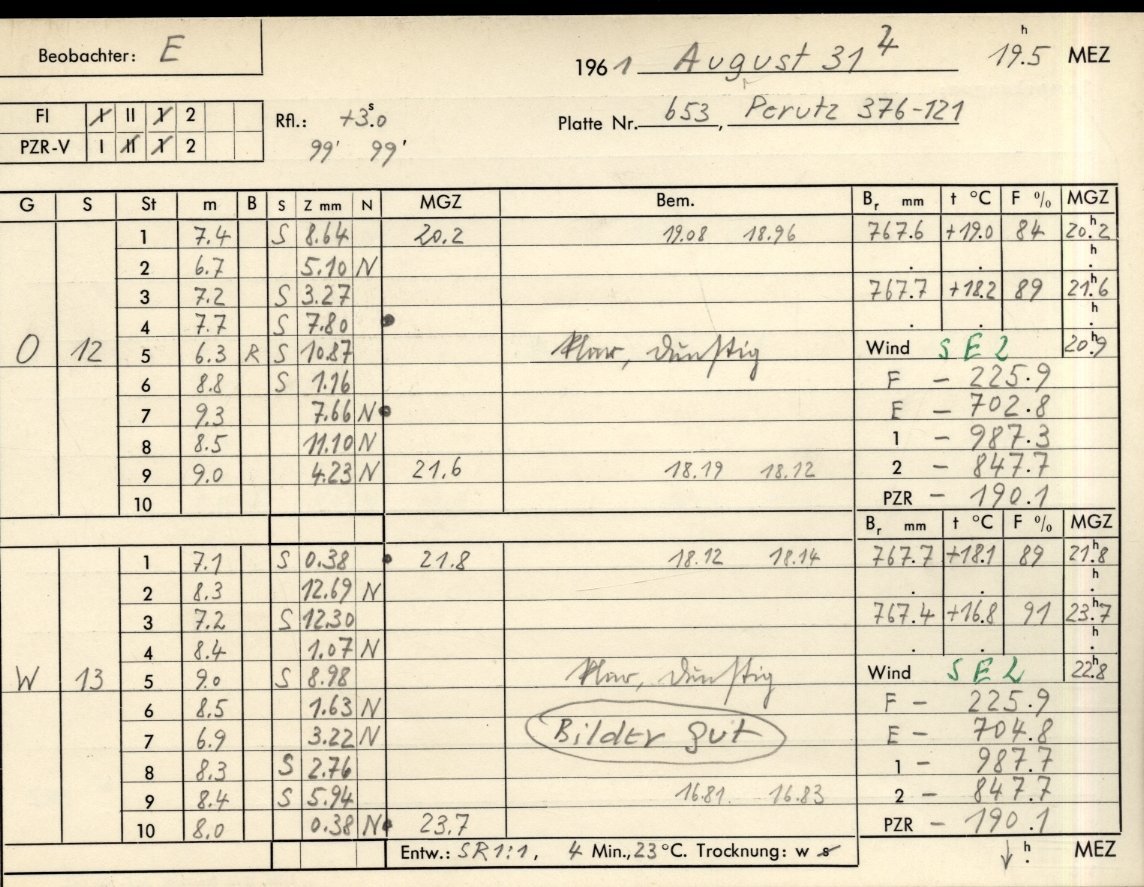 Beobachter: E
1961 August 31 19.5 h MEZ
FI I II 1 2
Rfl.: +3.0 s
Platte Nr. 653, Perutz 376-121
PZR-V I II 1 2
99' 99'
G S St m B S Z mm N MGZ Bem. Br mm t °C F % MGZ
1 7.4 S 8.64 20.2 19.08 18.96 767.6 +19.0 84 20.2 h
2 6.7 5.10 N . . h .
3 7.2 S 3.27 767.7 +18.2 89 21.6 h
4 7.7 S 7.80 . . h .
O 12 5 6.3 R S 10.87 klar, dunstig Wind SE2 20.9 h
6 8.8 S 1.16 F - 225.9
7 9.3 7.66 N E - 702.8
8 8.5 11.10 N 1 - 987.3
9 9.0 4.23 N 21.6 18.19 18.12 2 - 847.7
10 PZR - 190.1
Br mm t °C F % MGZ
1 7.1 S 0.38 21.8 18.12 18.14 767.7 +18.1 89 21.8 h
2 8.3 12.69 N . . h .
3 7.2 S 12.30 767.4 +16.8 91 23.7 h
4 8.4 1.07 N . . h .
W 13 5 9.0 S 8.98 klar, dunstig Wind SE2 22.8 h
6 8.5 1.63 N F - 225.9
7 6.9 3.22 N Bilder gut E - 704.8
8 8.3 S 2.76 1 - 987.7
9 8.4 S 5.94 16.81 16.83 2 - 847.7
10 8.0 0.38 N 23.7 PZR - 190.1
Entw.: SR1:1, 4 Min., 23 °C. Trocknung: w s h . MEZ